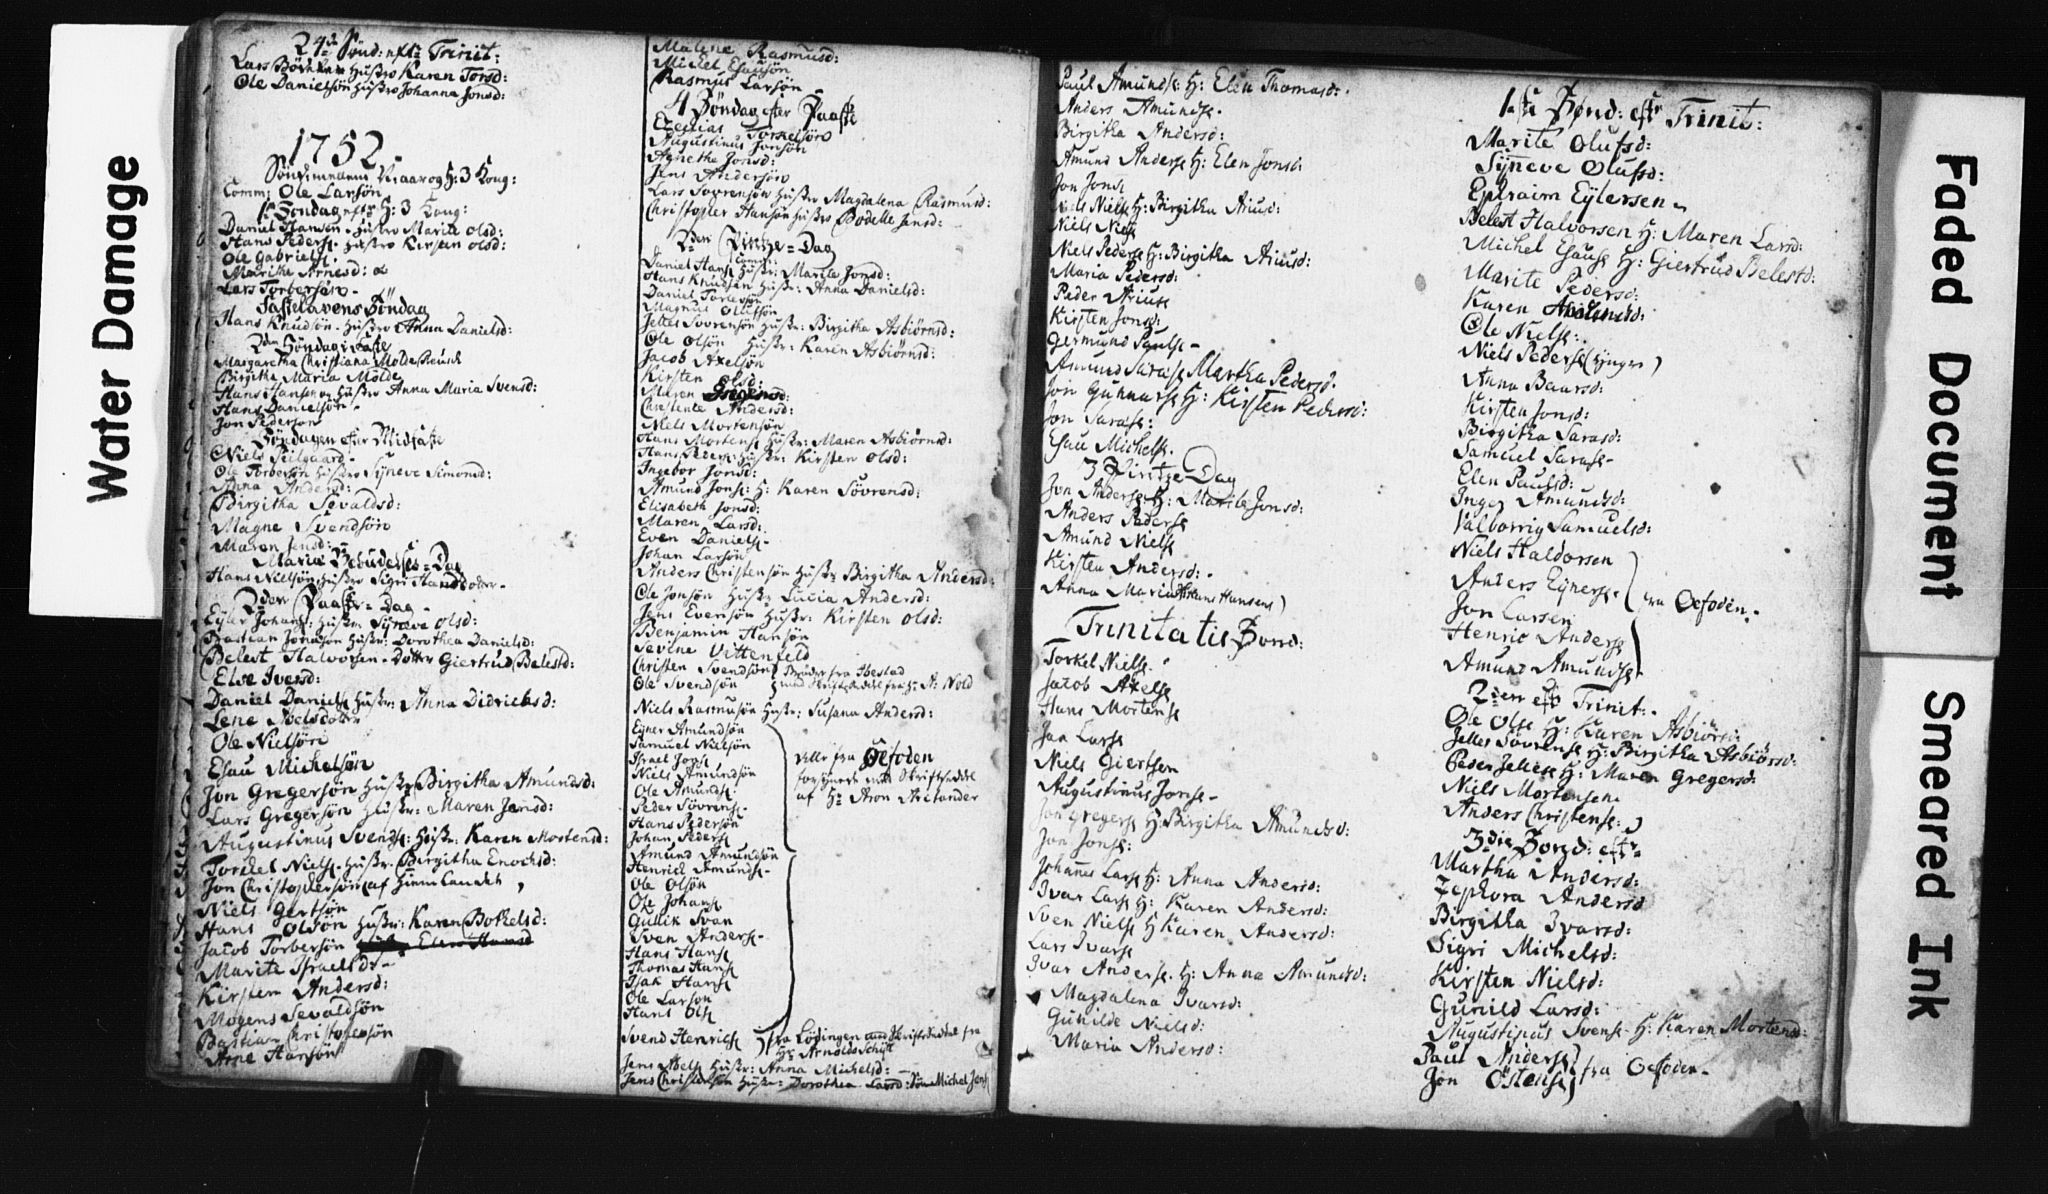 Water Damage
24de Sönd: eft: Trinit:
Lars Hustro Karen Torsd:
Ole Danielsön Hustro Johanna Jonsd:
1752
Sönd: imellem Nyaar og H: 3 Kong:
Comm: Ole Larsön
1ste Söndag eft: H: 3 Kong:
Daniel Hansen Hustro Marite Olsd:
Hans Peders: Hustro Kirsten Olsd:
Ole Gabriels:
Marithe Arnesd:
Lars Torbersön
Fastelavens Söndag
Hans Knudsön Hustro Anna Danielsd:
2den Söndag i Faste
Margaretha Christiana Molde
Birgitha Maria Molde
Hans Hansen og Hustro Anna Maria Svensd:
Hans Danielsön
Jon Pedersön
Söndagen efter Midfaste
Niels
Ole Torbersön Hustro Syneve Simonsd:
Anna Andersd:
Birgitha Sevaldsd:
Magne Svendsön
Maren Jensd:
Mariæ Bebudelses=Dag
Hans Nielsön Hustro Sigri Hansdotter
2den Paaske=Dag
Eyler Johans: Hustr: Syneve Olsd:
Bastian Hustr: Dorothea Danielsd:
Belest Halvorsen Dotter Giertrud Belestd:
Else Iversd:
Daniel Daniels Hustr: Anna Didrichsd:
Lene
Ole Nielsön
Esau Michelsön
Jon Gregersön Hustr: Birgitha Amundsd:
Lars Gregersön Hustr: Maren Jensd:
Augustinus Svends: Hustr: Karen Mortensd:
Torkel Niels: Hustr: Birgitha Enochsd:
Jon Christophersön af
Niels Gertsön
Hans Olsön Hustr: Karen Botkelsd:
Jacob Torbersön
Marite Israelsd:
Kirsten Andersd:
Mogens Sevaldsön
Bastian Christophersön
Arne Hansön
Malene Rasmusd:
Michel Esausön
Rasmus Larsön
4 Söndag efter Paaske
Ezechias Torkelsön
Augustinus Jonsön
Agnetha Jonsd:
Jens Andersön
Lars Sövrensön Hustr Magdalena Rasmusd:
Christopher Hansön Hustr Bodelle Jensd:
2den Pintze=Dag
Daniel Hans Hustr: Marite Jonsd:
Hans Knudsön Hustr: Anna Danielsd:
Daniel Torlersön
Magnus Olufsön
Jelles Sövrensön Hustr: Birgitha Asbiörnsd:
Ole Olsön Hustr: Karen Asbiörnsd:
Jacob Axelsön
Kirsten Olsd:
Maren
Christente Andersd:
Niels Mortensön
Hans Mortens Hustr: Maren Asbiörnsd:
Hans Peders: Hustr: Kirsten Olsd:
Ingebor Jonsd:
Amund Jons: H: Karen Sövrensd:
Elisabeth Jonsd:
Maren Larsd:
Even Daniels
Johan Larsön
Anders Christensön Hustr Birgitha Andersd:
Ole Jonsön Hustr Lucia Andersd:
Jens Evensön Hustr: Kirsten Olsd:
Benjamin Hansön
Sevine Vittenfeld
Christen Svendsön
Ole Svendsön
Brödre fra Ibestad
med Skriftseddel fra Hr A: Nold
Niels Rasmusön Hustr: Susana Andersd:
Eyner Amundsön
Samuel Nielsön
Israel Jons
Niels Amundsön
Ole Amunds
Peder Sövrens
Hans Pedersön
Johan Peders
Amund Amundsön
Henrich Amunds
Ole Olsön
Ole Johans
Gullik Svan
Sven Anders
Hans Hans
Thomas Hans
Isak Hans
Ole Larson
Hans Ols
Alle fra Oefoden
forsynede med Skriftseddel
af Hr Aron Arctander
Svend Henrich fra Lödingen med Skriftseddel fra
Hr Arnolds Schytt
Jens Niels Hustr: Anna Michelsd:
Jens Christensön Hustr: Dorothea Larsd: Michel Jens
Paul Amunds: H: Elen Thomasd:
Anders Amunds
Birgitha Andersd:
Amund Anders H: Elen Jonsd:
Jon Jons
Niels Niels H: Birgitha Ariusd:
Niels Niels
Niels Peders H: Birgitha Ariusd:
Maria Pedersd:
Peder Arius
Kirsten Jonsd:
Germund Pauls
Amund Saras Martha Pedersd:
Jon Gunnars H: Kirsten Pedersd:
Jon Saras:
Esau Michels
3 Pintze Dag
Jon Anders H: Marite Jonsd:
Anders Peders
Amund Niels
Kirsten Andersd:
Anna Maria (Hans Hansens)
Trinitatis Sönd:
Torkel Niels
Jacob Axels
Hans Mortens
Jon Lars
Niels Giertsen
Augustinus Jons
Jon Gregers H: Birgitha Amundsd:
Jon Jons:
Johannes Lars H: Anna Andersd:
Ivar Lars H: Karen Andersd:
Sven Niels H Karen Andersd:
Lars Ivars
Ivar Anders H: Anna Amundsd:
Magdalena Ivarsd:
Gunilde Nielsd:
Maria Andersd:
1ste Sönd: eftr Trinit:
Marite Olufsd:
Syneve Olufsd:
Ephraim Eylersen
Belest Halvorsen H: Maren Larsd:
Michel Esaus H: Giertrud Belestd:
Marite Pedersd:
Karen
Ole Niels:
Niels Peders
Anna Baarsd:
Kirsten Jonsd:
Birgitha Sarasd:
Samuel Saras
Elen Paulsd:
Inger Amundsd:
Valborrig Samuelsd:
Niels Haldorsen
Anders Eyners
Jon Larsen
Henric Anders
Amund Amunds
fra Oefoden
2den eftr Trinit:
Ole Ols H: Karen Asbiörsd:
Jelles Sövrens H: Birgitha Asbiörsd:
Peder Jelles H: Maren Gregersd:
Niels Mortensen
Anders Christens:
3die Sönd: eftr
Martha Andersd:
Zephora Andersd
Birgitha Ivarsd:
Sigri Michelsd:
Kirsten Nielsd:
Gunild Larsd:
Augustinus Svens H: Karen Mortensd:
Paul Anders
Jon Östens
fra Oefoden
Faded Document
Smeared Ink